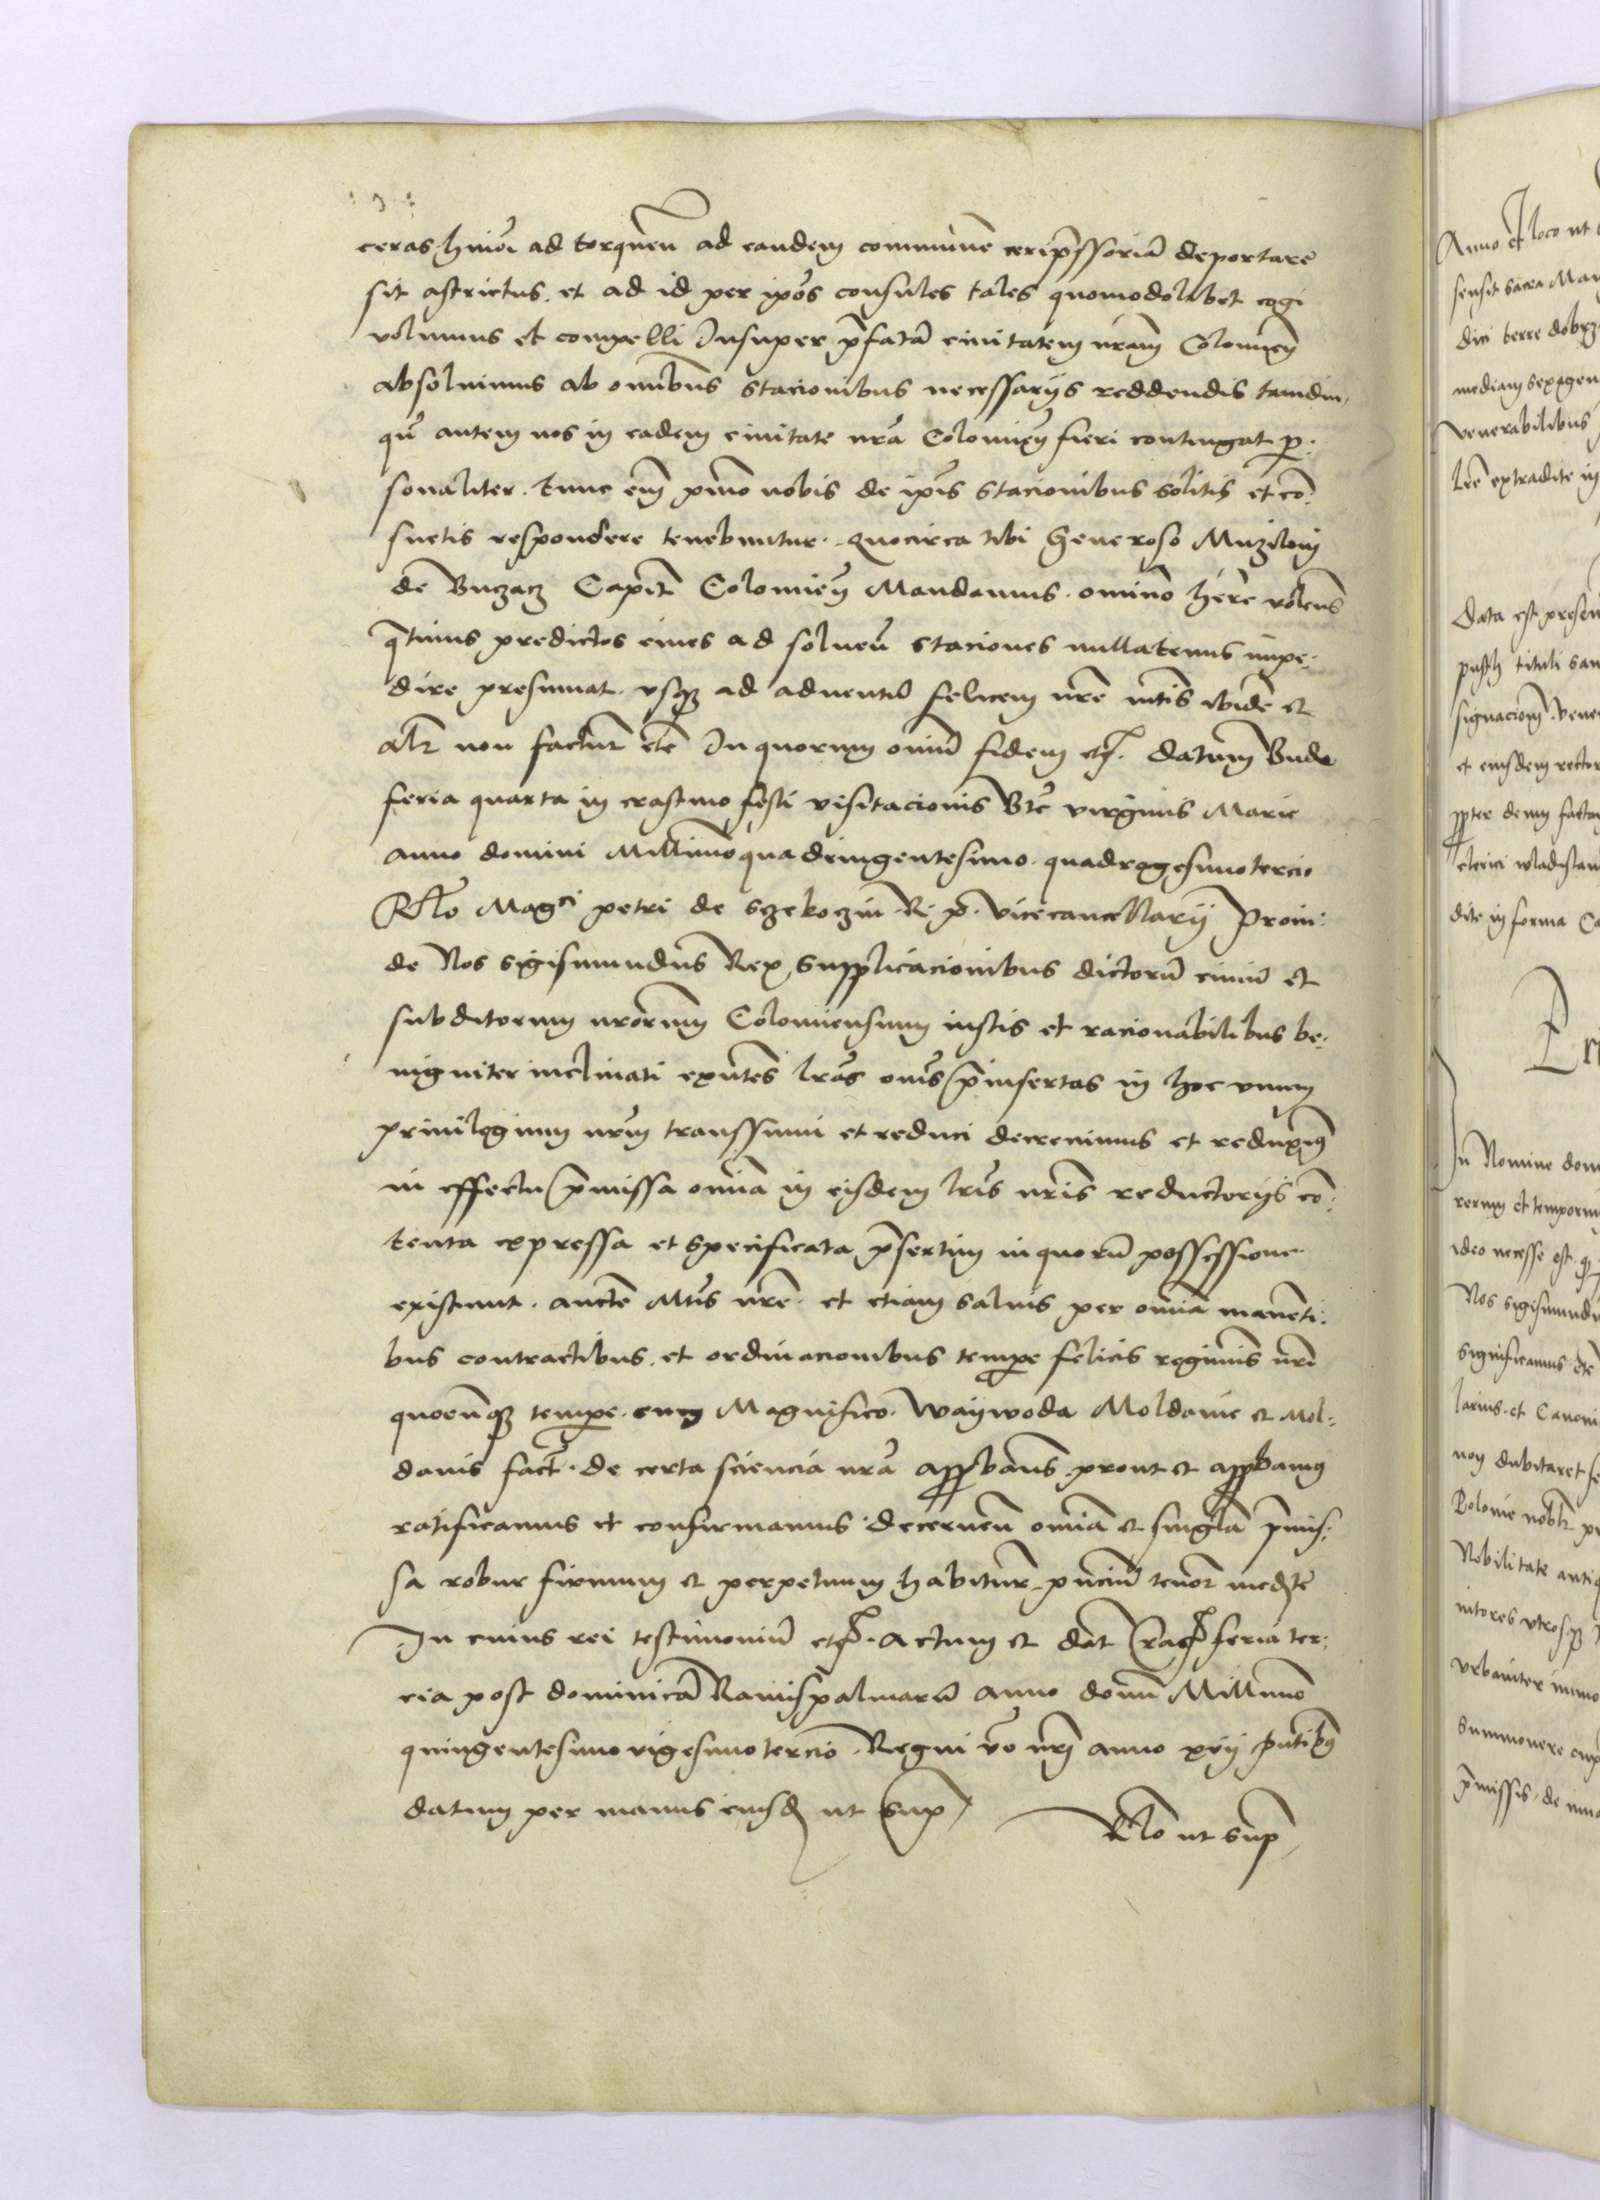 ceras hmoi ad torquen ad eandem commune cerip̄ssoriā deportare
sit astrictus. et ad id per ipos consules tales quomodolibet cogi
volumus et compelli Insuper p̄fatā ciuitatem nram Colomien
absoluimus ab omibus stacionibus necessarys reddendis tamdiu,
qn̄ autem nos in eadem ciuitate nrā Colomien fieri contingat per:
sonaliter. tunc em̄ primo nobis de ipis stacionibus solitis et cō:
suetis respondere tenebuntur. Quocirca tibi Generoso Muzilom
de Buczacz Capit Colomien Mandamus. omino hēre volens
q̄tinus predictos ciues ad soluen staciones nullatenus impe:
dire presumat. vsq3 ad aduentū felicem nre mtis ibide et
alr̄ non factur̄ etc̄ In quorum omiū fidem etc. datum Bude
feria quarta in crastino festi visitacionis Bte virginis Marie
anno domini Millimoquadringentesimo. quadragesimotercio
Rlo Magci petri de Sczekoczin R. p. vicecancellarij Proin:
de Nos Sigismundus Rex supplicacionibus dictorū ciuiū et
subditorum nrorum Colomiensium iustis et racionabilibus be:
nigniter inclinati exntes lrās omēs p̄insertas in hoc vnum
priuilegium nrm transsumi et reduci decreuimus et reduxim9
in effectu p̄missa omia in eisdem lris nris reductorijs cō:
tenta expressa et specificata p̄sertim in quorū possessione
existunt. aucte Mtis nre. et etiam saluis per omia manenti:
bus contractibus. et ordinacionibus tempe felicis regiminis nri
quocūq3 tempe. cum Magnifico. Waywoda Moldauie et Mol:
dauis fact̄. de certa sciencia nrā approbans. prout et approbam9
ratificamus et confirmamus. decernen omia et singla p̄mis:
sa robur firmum et perpetuum habitur. pnciū tenor̄ medte
In cuius rei testimoniū etc. Actum et dat Crac feria ter:
cia post dominicā Ramispalmarū anno domi Millimo
quingentesimo vigesimo tercio. Regni vo nrj anno xvij pntib9
datum per manus eiusd ut supra
Rlo ut supra
Anno et loco ut
sensit sacra
dici terre
mediam sexagen
venerabilibus
lre extradite in
Data est presen
tituli san
signaciom. Vene
et eiusdem rector
ppter denm factam
clerici wladislau
dite in forma
In Nomine dom
rerum et temporum
ideo necesse est
Nos Sigismundus
Significamus
larius. et Canoni
non dubitaret
Polonie nobli
Nobilitate antiq
nitores vtrosq3
vrbaniter
Summouere
p̄missis. de